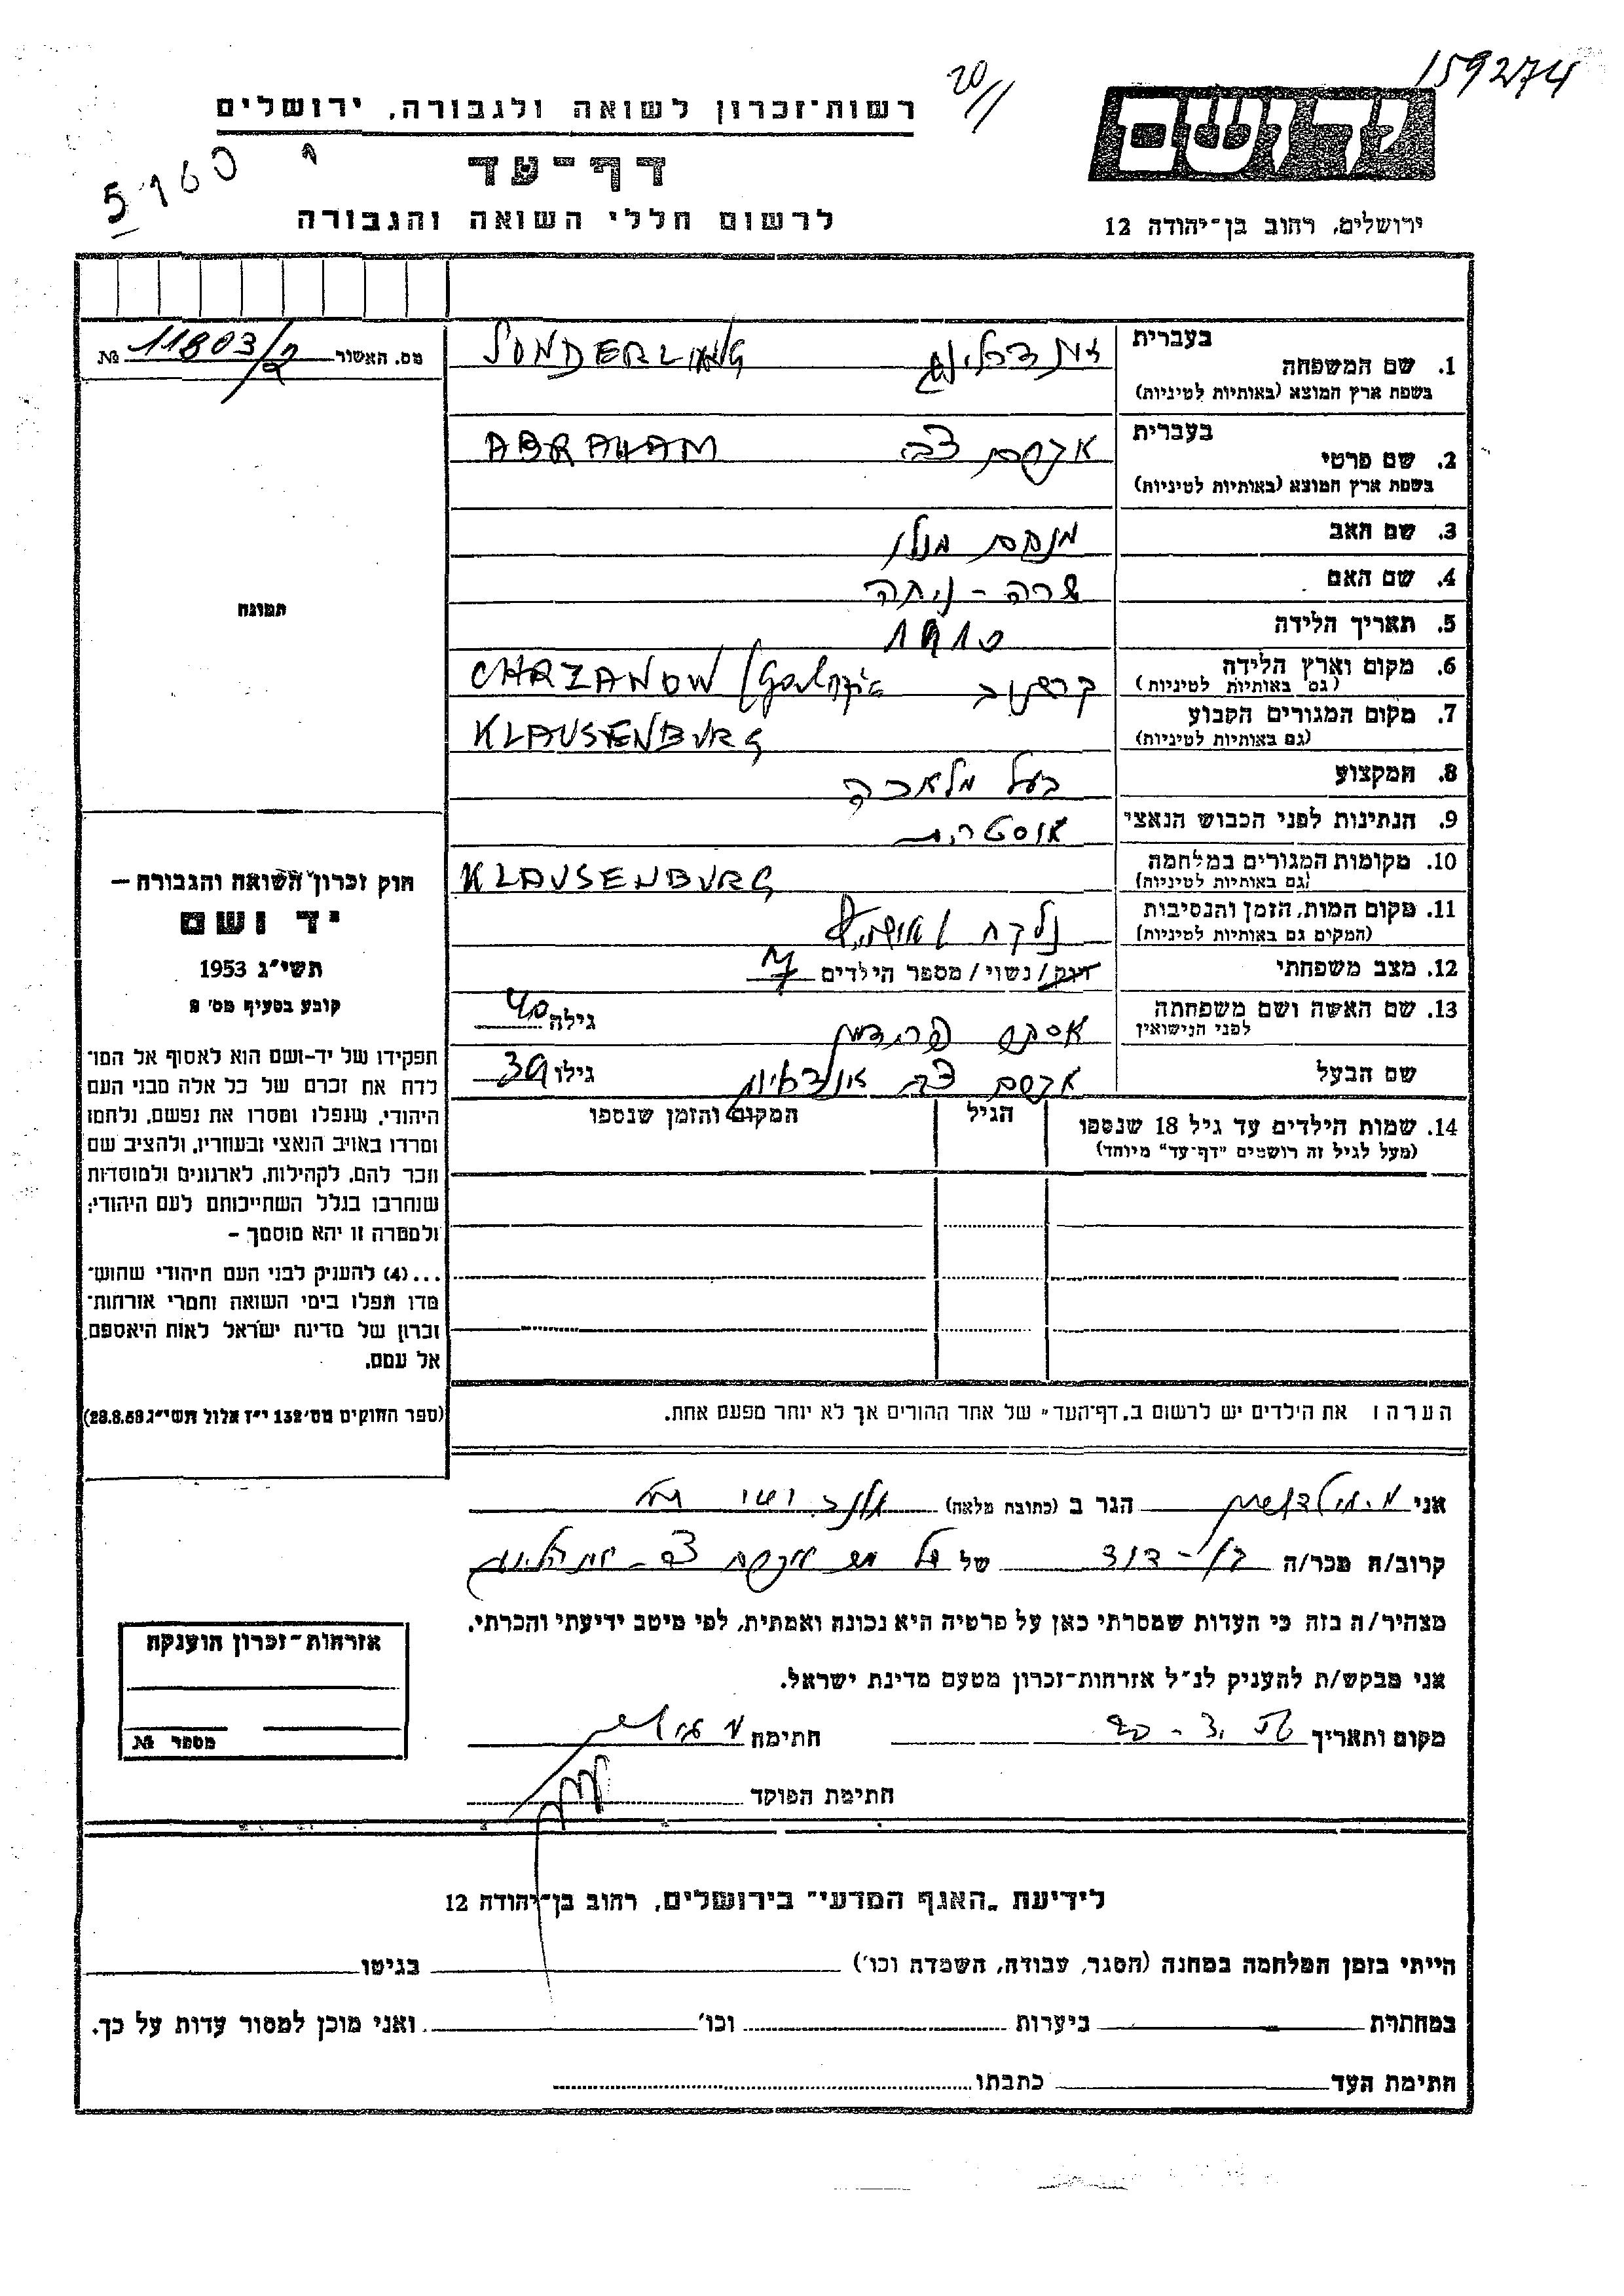 159274
20/1
רשות-זכרון לשואה ולגבורה, ירושלים
דף-עד
לרשום חללי השואה והגבורה
יד ושם
ירושלים, רחוב בן-יהודה 12
מס. האשור 11803/2 №
בעברית
1. שם המשפחה SONDERLING
בשפת ארץ המוצא (באותיות לטיניות)
בעברית
2. שם פרטי אברהם צבי ABRAHAM
בשפת ארץ המוצא (באותיות לטיניות)
3. שם האב מנחם מנלי
4. שם האם שרה -
5. תאריך הלידה 1910
6. מקום וארץ הלידה CHRZANOW
(גם באותיות לטיניות)
7. מקום המגורים הקבוע KLAUSENBURG
(גם באותיות לטיניות)
8. המקצוע בעל מלאכה
9. הנתינות לפני הכבוש הנאצי אוסטרית
10. מקומות המגורים במלחמה KLAUSENBURG
(גם באותיות לטיניות)
11. מקום המות, הזמן והנסיבות נלקח
(המקום גם באותיות לטיניות)
12. מצב משפחתי רווק/נשוי/מספר הילדים 7
13. שם האשה ושם משפחתה אסתר גילה 40
לפני הנישואין
שם הבעל אברהם צבי גילו 39
14. שמות הילדים עד גיל 18 שנספו הגיל המקום והזמן שנספו
(מעל לגיל זה רושמים "דף-עד" מיוחד)
הערה: את הילדים יש לרשום ב"דף-העד" של אחד ההורים אך לא יותר מפעם אחת.
תמונה
חוק זכרון השואה והגבורה —
יד ושם
תשי"ג 1953
קובע בסעיף מס' 2
תפקידו של יד-ושם הוא לאסוף אל המו-
לדת את זכרם של כל אלה מבני העם
היהודי, שנפלו ומסרו את נפשם, נלחמו
ומרדו באויב הנאצי ובעוזריו, ולהציב שם
וזכר להם, לקהילות, לארגונים ולמוסדות
שנחרבו בגלל השתייכותם לעם היהודי;
ולמטרה זו יהא מוסמך –
...(4) להעניק לבני העם היהודי שהוש-
מדו ונפלו בימי השואה והמרי אזרחות-
זכרון של מדינת ישראל לאות היאספם
אל עמם.
(ספר החוקים מס' 132 י"ז אלול תשי"ג 28.8.53)
אני הגר ב (כתובת מלאה)
קרוב/ה מכר/ה בן-דוד של
מצהיר/ה בזה כי העדות שמסרתי כאן על פרטיה היא נכונה ואמתית, לפי מיטב ידיעתי והכרתי.
אני מבקש/ת להעניק לנ"ל אזרחות-זכרון מטעם מדינת ישראל.
מקום ותאריך חתימה
חתימת הפוקד
אזרחות-זכרון הוענקה
מספר №
לידיעת "האגף המדעי" בירושלים, רחוב בן-יהודה 12
הייתי בזמן המלחמה במחנה (הסגר, עבודה, השמדה וכו') בגיטו
במחתרת ביערות וכו' ואני מוכן למסור עדות על כך.
חתימת העד כתבתו